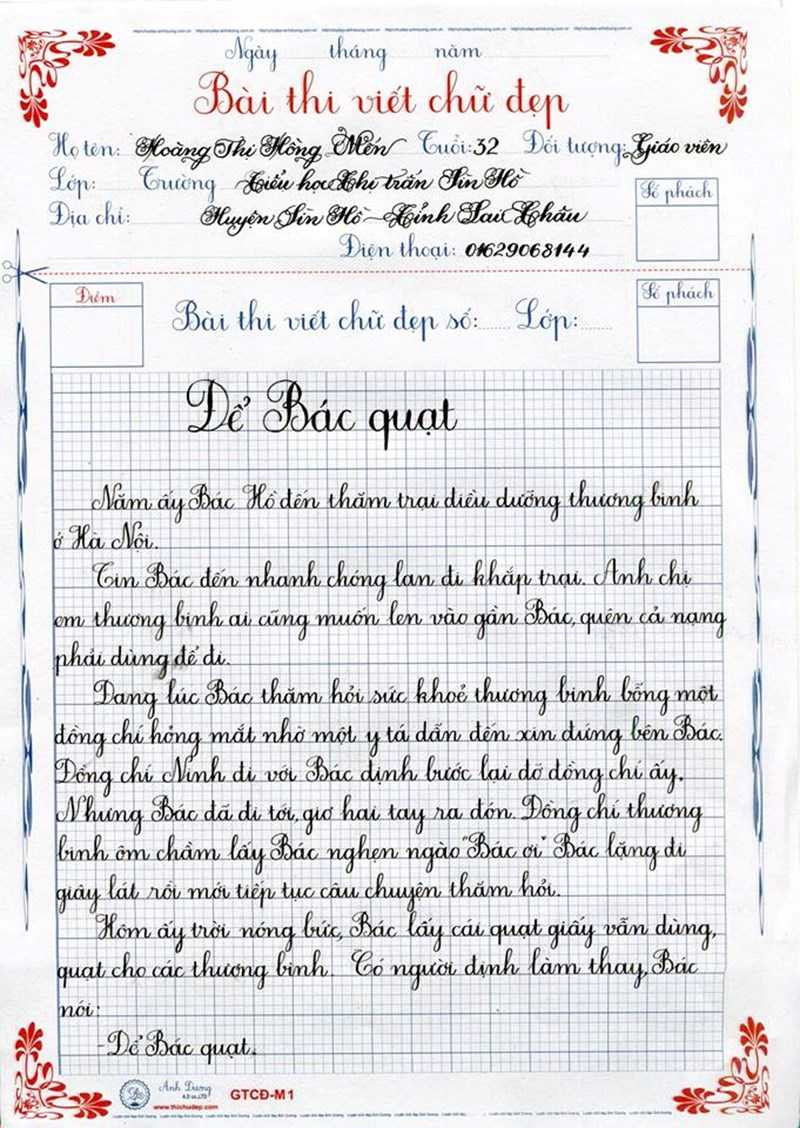 Ngày tháng năm
Bài thi viết chữ đẹp
Họ tên: Hoàng Thị Hồng Mến Tuổi: 32 Đối tượng: Giáo viên
Lớp: Trường Tiểu học Thị trấn Sìn Hồ
Địa chỉ: Huyện Sìn Hồ - Tỉnh Lai Châu
Số phách
Điện thoại: 01629068144
Điểm
Bài thi viết chữ đẹp số:...... Lớp:......
Số phách
Để Bác quạt
Năm ấy Bác Hồ đến thăm trại điều dưỡng thương binh
ở Hà Nội.
Tin Bác đến nhanh chóng lan đi khắp trại. Anh chị
em thương binh ai cũng muốn len vào gần Bác, quên cả nạng
phải dùng để đi.
Đang lúc Bác thăm hỏi sức khoẻ thương binh bỗng một
đồng chí hỏng mắt nhờ một y tá dẫn đến xin đứng bên Bác.
Đồng chí Ninh đi với Bác định bước lại đỡ đồng chí ấy.
Nhưng Bác đã đi tới, giơ hai tay ra đón. Đồng chí thương
binh ôm chầm lấy Bác nghẹn ngào "Bác ơi" Bác lặng đi
giây lát rồi mới tiếp tục câu chuyện thăm hỏi.
Hôm ấy trời nóng bức, Bác lấy cái quạt giấy vẫn dùng,
quạt cho các thương binh. Có người định làm thay, Bác
nói:
- Để Bác quạt.
Ánh Dương
www.thichudep.com
GTCĐ-M1